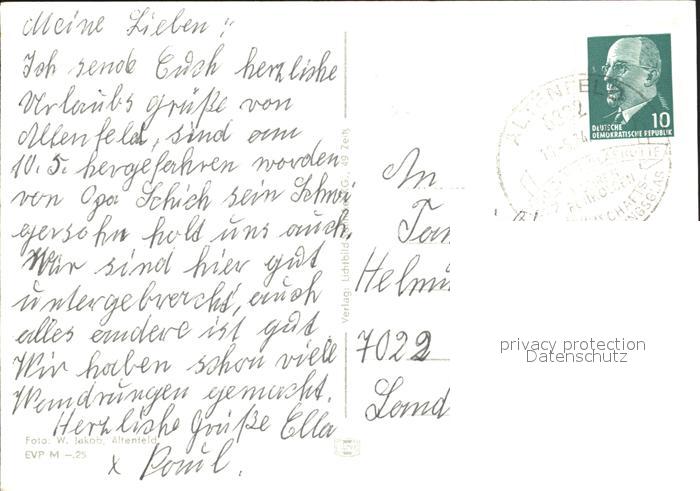 Meine Lieben!!
Ich sende Euch herzliche
Urlaubs grüße von
Altenfeld, sind am
10. 5. hergefahren worden
von Opa Schich sein Schwi
gersohn holt uns auch.
Wir sind hier gut
untergebracht, auch
alles andere ist gut
Wir haben schon viele
Wandrungen gemacht.
Herzliche Grüße Ella
x Paul.
Foto: W. Jakob, Altenfeld
EVP M -.25
Verlag: Lichtbild 49 Zeitz
An
Fam
Helmu
7022
Land
ALTENFELD
10
DEUTSCHE
DEMOKRATISCHE REPUBLIK
privacy protection
Datenschutz